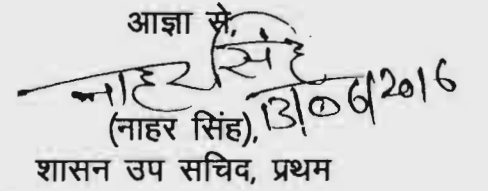 आज्ञा से,
नाहर सिंह
13/06/2016
(नाहर सिंह),
शासन उप सचिव, प्रथम